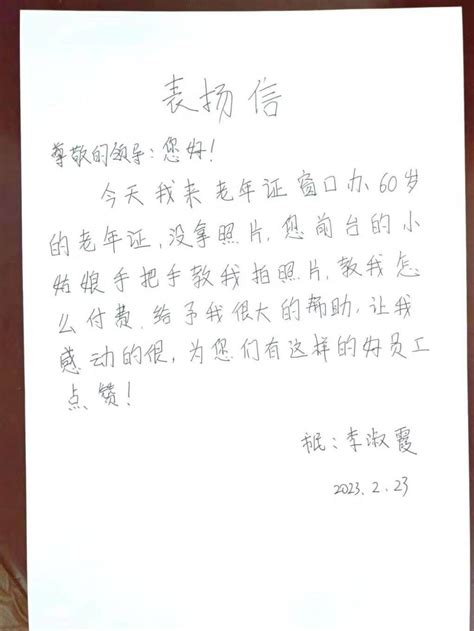 表扬信
尊敬的领导:您好!
今天我来老年证窗口办60岁
的老年证,没拿照片,您前台的小
姑娘手把手教我拍照片,教我怎
么付费.给予我很大的帮助,让我
感动的很,为您们有这样的好员工
点赞!
:李淑霞
2023.2.23